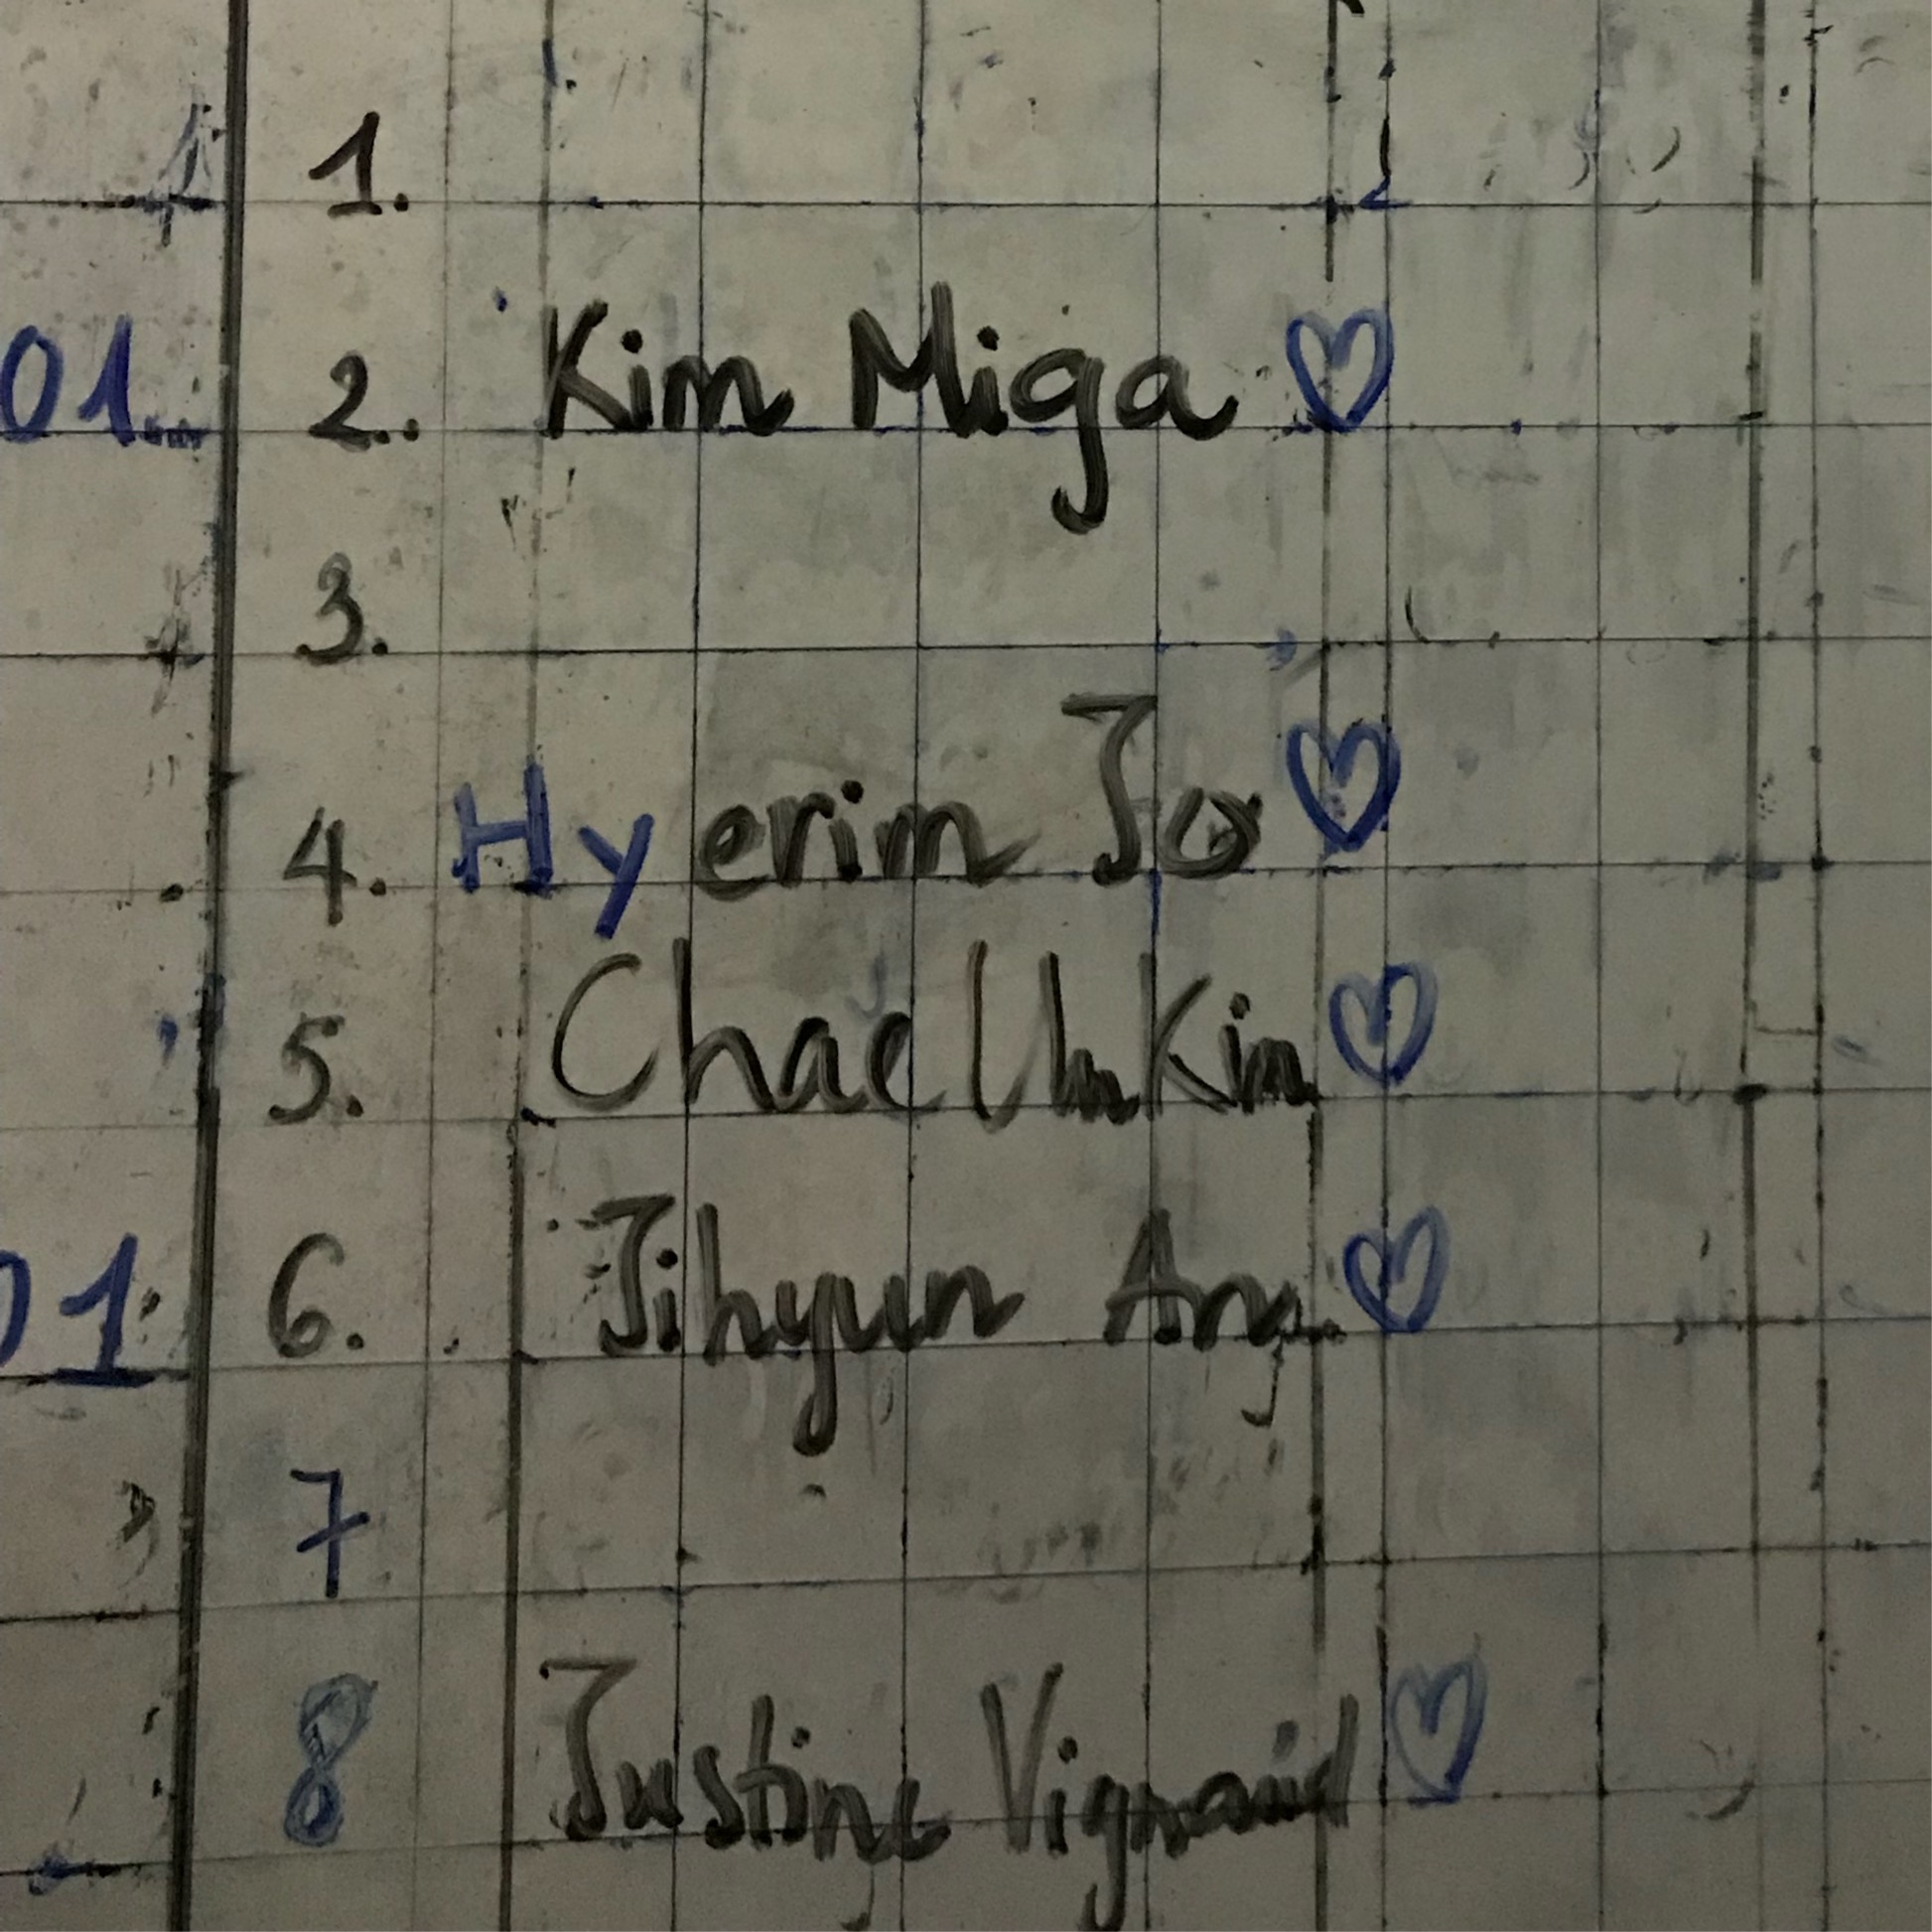 1.
01. 2. Kim Miga ♡
3.
4. Hyerim Jo ♡
5. Chae Un Kim ♡
01. 6. Jihyun Ang ♡
7
8 Justine Vignaid ♡